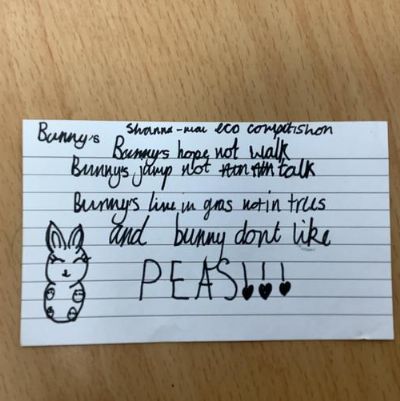 Bunny's
Shanna-mai eco compotishon
Bunnys hope not walk
Bunnys jump not talk
Bunnys live in gras not in trees
and bunny dont like
PEAS!!!